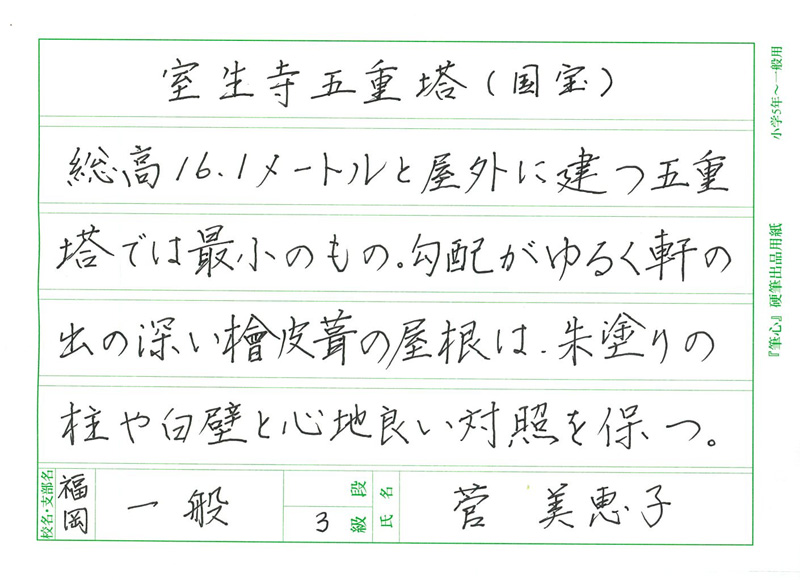 室生寺五重塔(国宝)
総高16.1メートルと屋外に建つ五重
塔では最小のもの。勾配がゆるく軒の
出の深い檜皮葺の屋根は、朱塗りの
柱や白壁と心地良い対照を保つ。
校名・支部名 福岡 一般 段 3級 氏名 菅 美恵子
小学5年〜一般用
『筆心』硬筆出品用紙